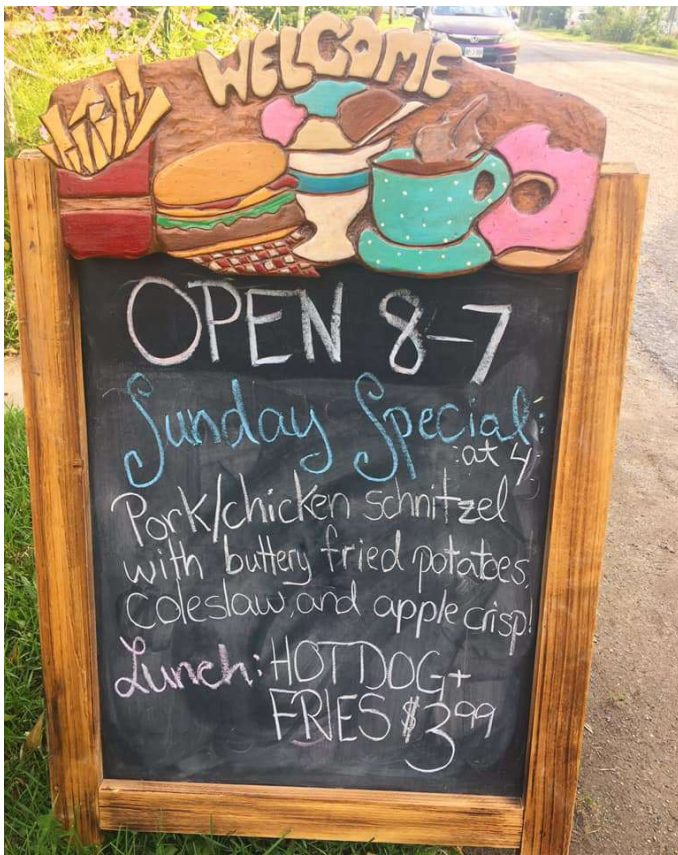 WELCOME
OPEN 8-7
Sunday Special:
at 4
Pork/chicken schnitzel
with buttery fried potatoes,
coleslaw, and apple crisp!
Lunch: HOT DOG +
FRIES $3.99